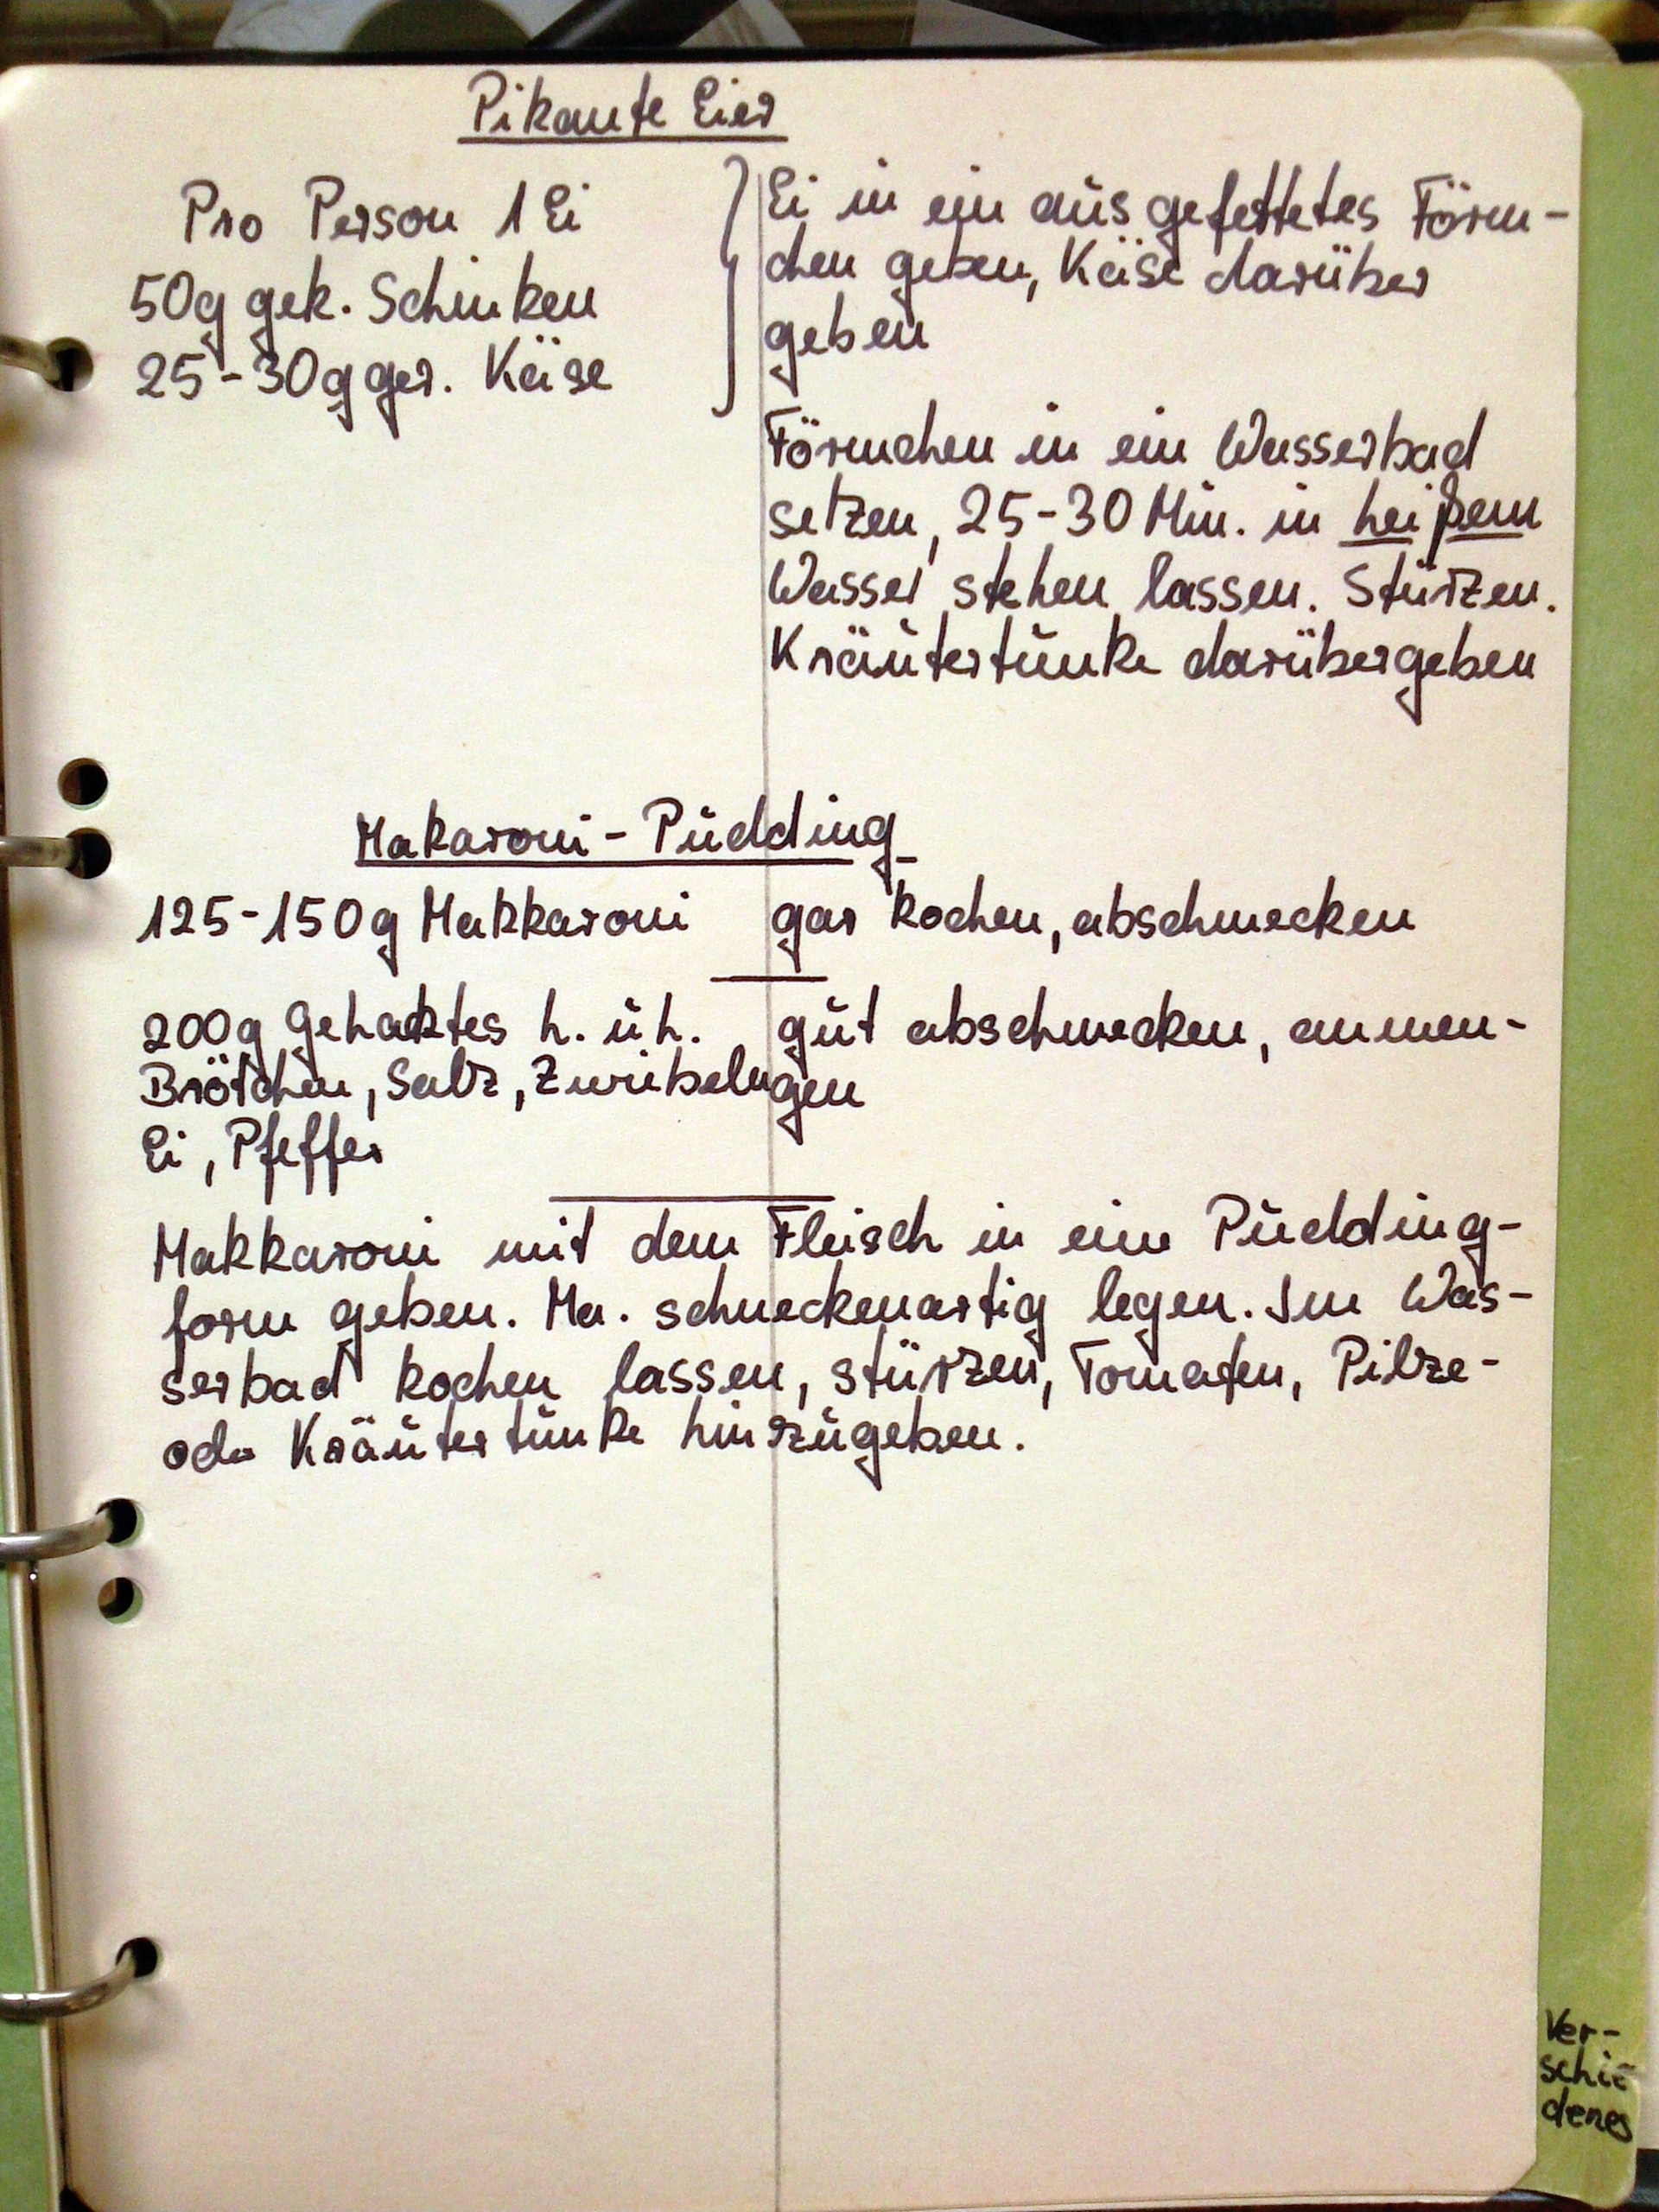 Pikante Eier
Pro Person 1 Ei
50g gek. Schinken
25-30g ger. Käse
Ei in ein ausgefettetes Förm-
chen geben, Käse darüber
geben
Förmchen in ein Wasserbad
setzen, 25-30 Min. in heißem
Wasser stehen lassen. Stürzen.
Kräutertunke darübergeben
Makaroni-Pudding
125-150g Makkaroni
gar kochen, abschmecken
200g Gehacktes h. u h.
Brötchen, Salz, Zwiebeln
Ei, Pfeffer
gut abschmecken, anmen-
gen
Makkaroni mit dem Fleisch in eine Pudding-
form geben. Ma. schneckenartig legen. Im Was-
serbad kochen lassen, stürzen, Tomaten, Pilze-
oder Kräutertunke hinzugeben.
Ver-
schie
denes